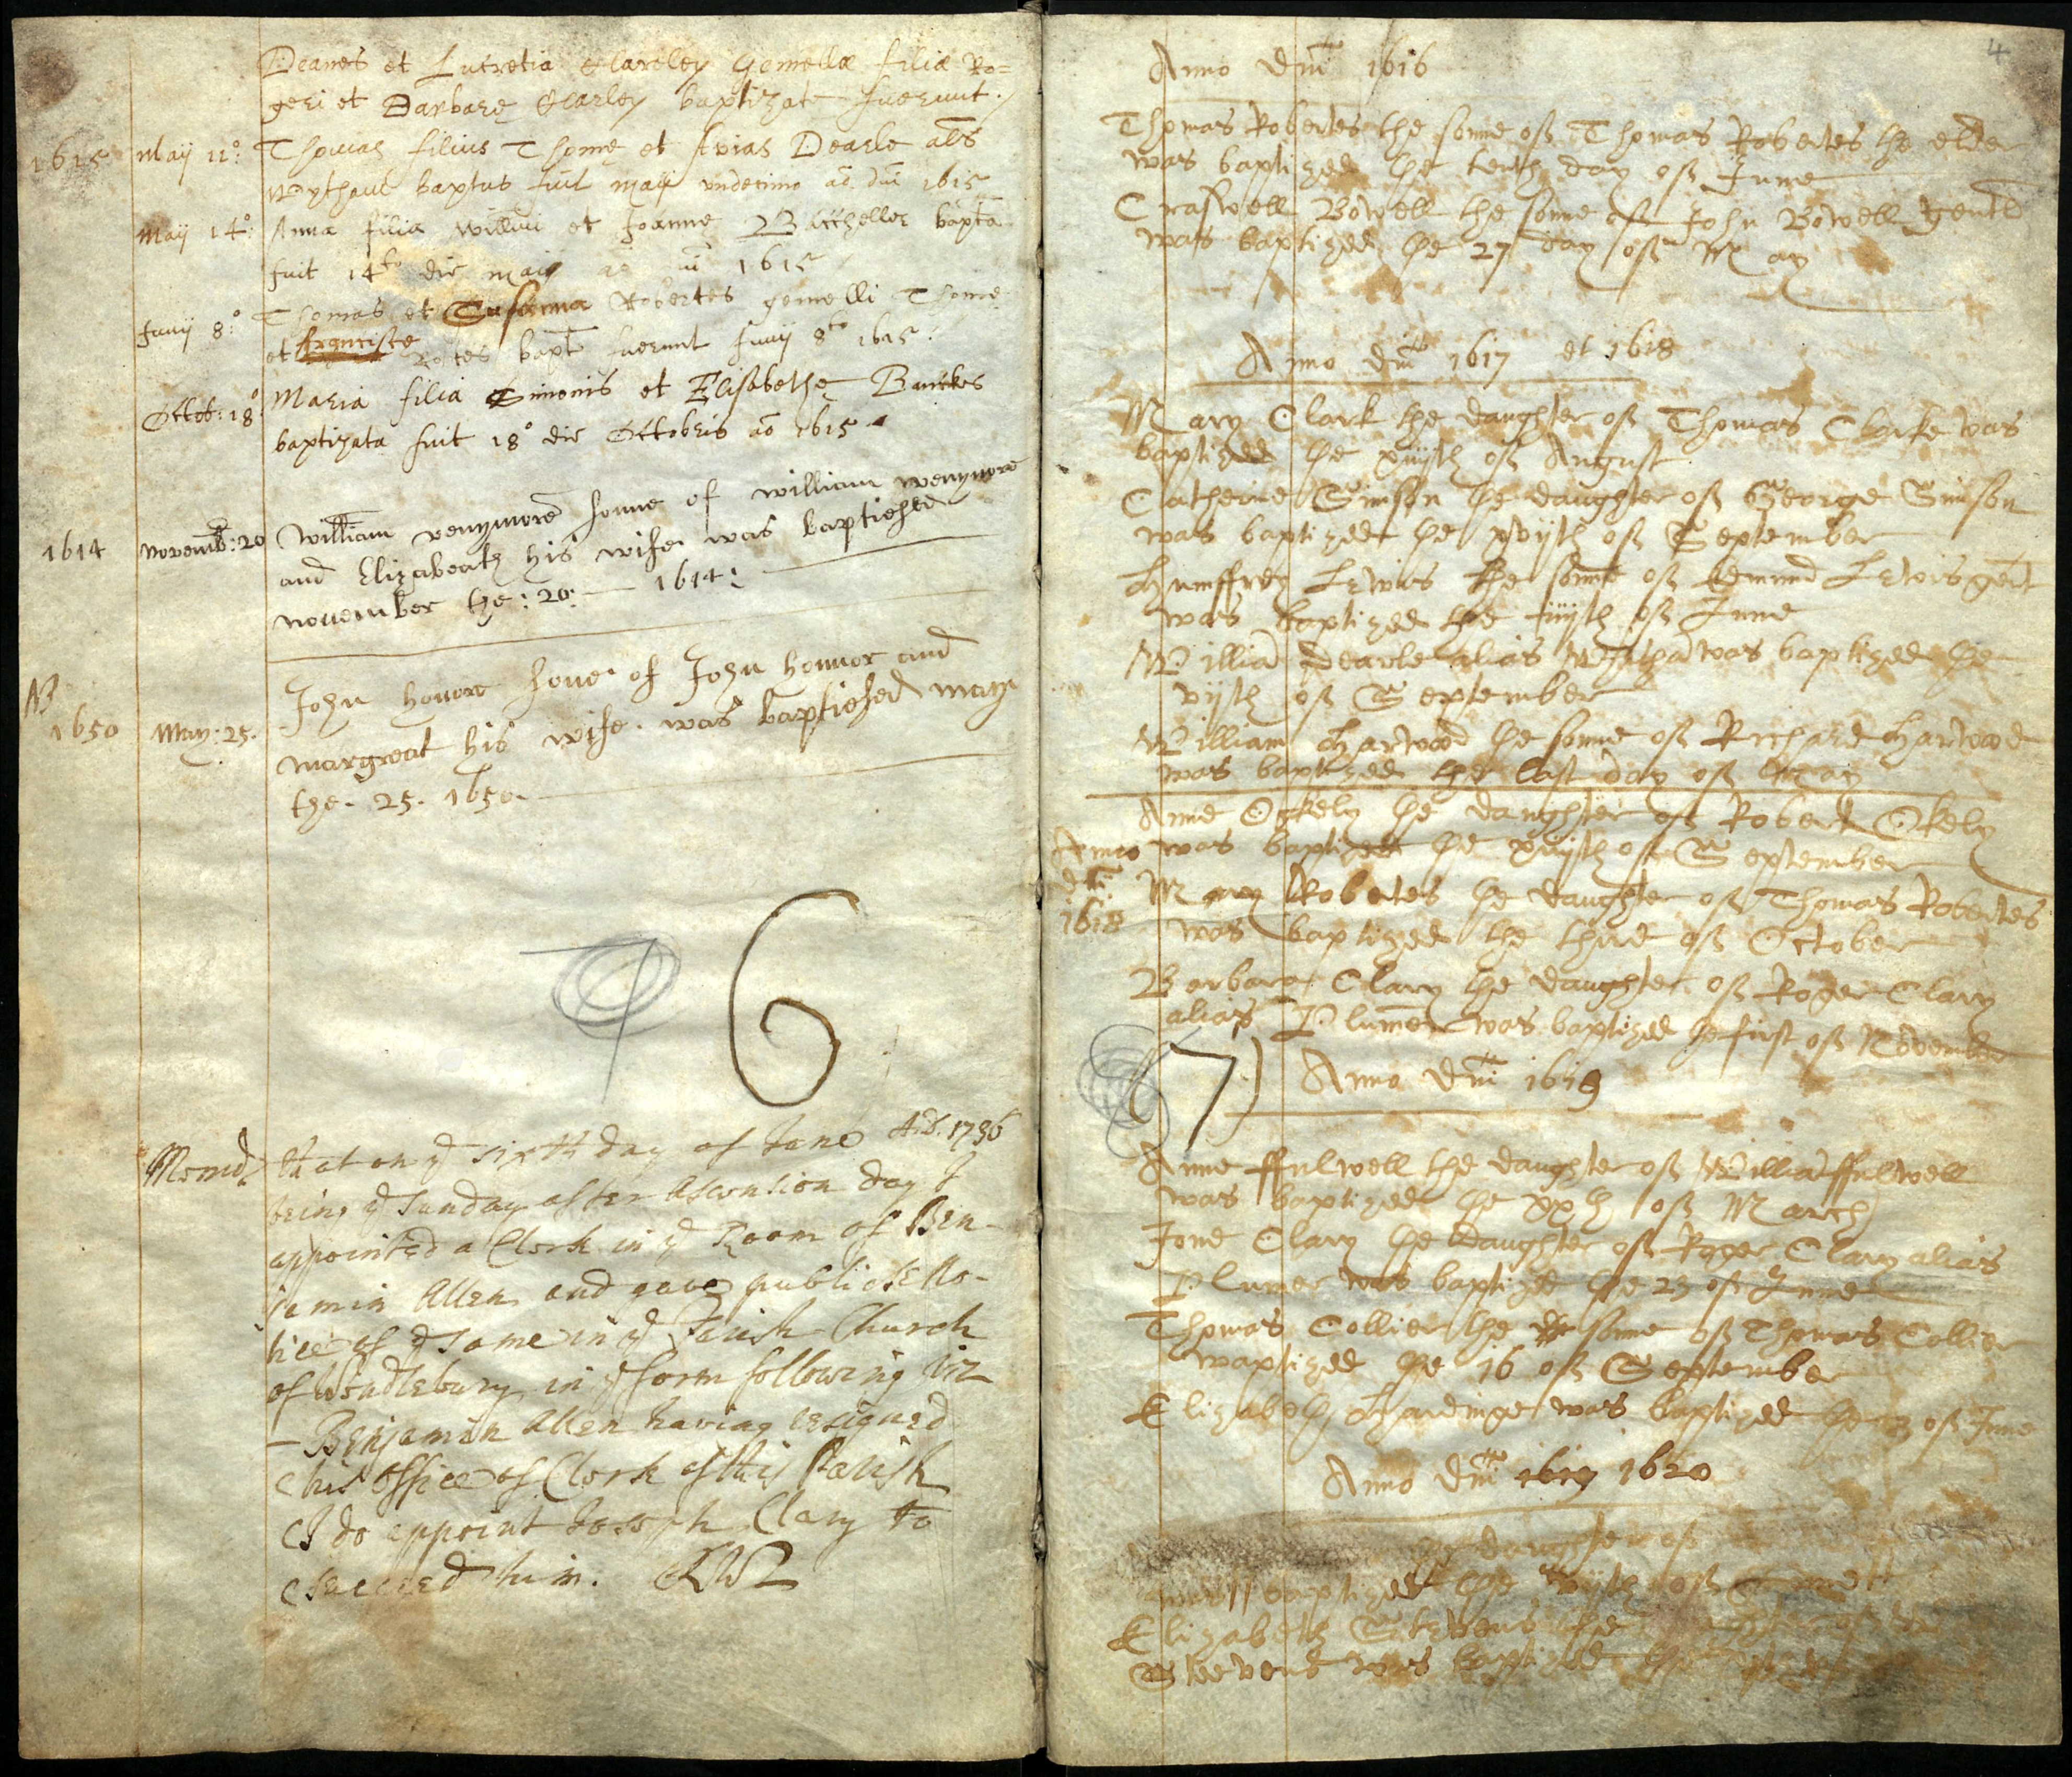 Deanes et Lucretia Clareley Gemellæ filiæ Ro=
geri et Barbare Clarley baptizate fuerunt.
1615 Maij 11º: Thomas filius Thome et Avias Dearle als
Wythaul baptus fuit maij undecimo aõ dñi 1615
Maij 14º: Anna filia Willmi et Joanne Batcheller bapta
fuit 14to die maij 1615
Junij 8º: Thomas et Susanna Robertes gemelli Thome
et francisce Robtes bapt fuerunt Junij 8to 1615.
Octob: 18º. Maria filia Simonis et Elisabethe Banckes
baptizata fuit 18º die Octobris aõ 1615
1614 novemb: 20 William wenymore sonne of william wenymore
and Elizabeath his wife was baptiesed
november the: 20: — 1614:
NB
1650 May: 25. John honore sone of John honnor and
margreat his wife. was baptiesed may
the. 25. 1650.
6
Memd. that on ye sixth day of June A:D. 1736
being ye Sunday after Ascension day I
appointed a Clerk in ye Room of Ben-
jamin Allen and gave publick No-
tice of ye same in ye Parish Church
of Wendlebury in ye form following viz
— Benjamin Allen having resigned
his office of Clerk of this Parish
I do appoint Joseph Clary to
succeed him. RW
4
Anno Dñi 1616
Thomas Robertes the sonne off Thomas Robertes the elder
was baptized the tenth day off June
Craswell Bowell the sonne off John Bowell gentl
was baptized the 27 day off May
Anno dñi 1617 et 1618
Mary Clark the daughter off Thomas Clarke was
baptized the xiiijth off August
Catherine Simson the daughter off George Simson
was baptized the xvijth off September
Humffrey Lewis the sonne off Edmund Lewis gent
was baptized the iiijth off June
Willia Dearle alias Wytha was baptized the
vijth off September
William Harwood the sonne off Richard Harwood
was baptized the last day off May
Anne Okely the daughter off Robert Okely
Anno was baptized the xiijth off September
dñi Mary Robertes the daughter off Thomas Robertes
1618 was baptized the third off October
Barbara Clary the daughter off Roger Clary
alias Plumer was baptized the first off November
(7) Anno Dñi 1619
Anne ffulwell the daughter off Willia ffulwell
was baptized the xxth off March
Jone Clary the daughter off Roger Clary alias
Plumer was baptized the 23 off June
Thomas Collier the sonne off Thomas Collier
waptized the 16 off September
Elizabeth Hardinge was baptized the 3 off June
Anno Dñi 1619 1620
the daughter off
was baptized the off
Elizabeth Stevens the daughter
Steevens was baptized the